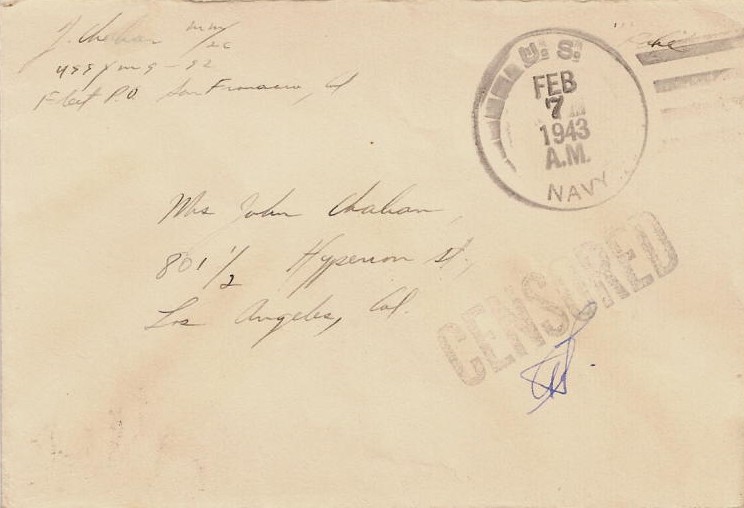 J. Chahan MM/2c
YMS-92
Fleet P.O. San Francisco, Cal
Free
U. S.
FEB
7
1943
A.M.
NAVY
Mrs John Chahan,
801 1/2 Hyperion St.,
Los Angeles, Cal.
CENSORED